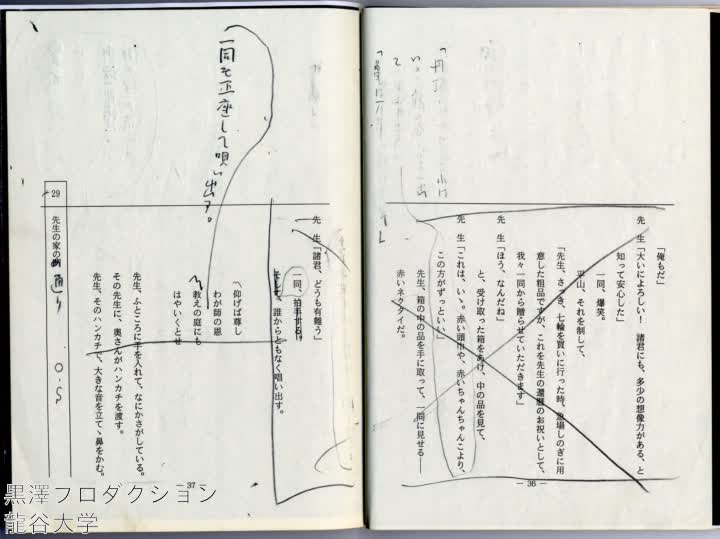 「俺もだ」
先　生「大いによろしい！　諸君にも、多少の想像力がある、と
知って安心した」
一同、爆笑。
平山、それを制して、
「先生、さっき、七輪を買いに行った時、急場しのぎに用
意した粗品ですが、これを先生の還暦のお祝いとして、
我々一同から贈らせていただきます」
先　生「ほう、なんだね」
と、受け取った箱をあけ、中の品を見て、
先　生「これは、いゝ。赤い頭巾や、赤いちゃんちゃんこより、
この方がずっといい」
先生、箱の中の品を手に取って、一同に見せる――
赤いネクタイだ。
— 36 —
先　生「諸君、どうも有難う」
一同、拍手する。
そして、誰からともなく唱い出す。
一同も正座して唄い出す。
〽仰げば尊し
わが師の恩
〽教えの庭にも
はやいくとせ
先生、ふところに手を入れて、なにかさがしている。
その先生に、奥さんがハンカチを渡す。
先生、そのハンカチで、大きな音を立てゝ鼻をかむ。
29
先生の家の
通り
— 37 —
黒澤プロダクション
龍谷大学